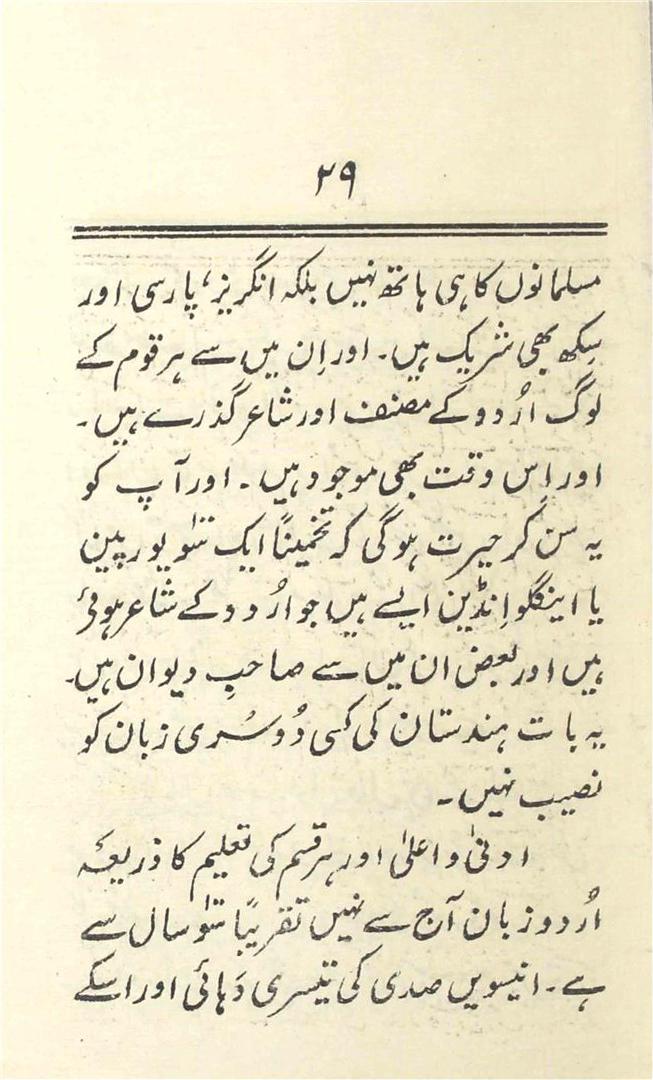 ۲۹
مسلمانوں کا ہی ہاتھ نہیں بلکہ انگریز، پارسی اور
سِکھ بھی شریک ہیں۔ اور اِن میں سے ہر قوم کے
لوگ اُردو کے مصنف اور شاعر گذرے ہیں۔
اور اِس وقت بھی موجود ہیں۔ اور آپ کو
یہ سن کر حیرت ہوگی کہ تخمیناً ایک سَو یورپین
یا اینگلو اِنڈین ایسے ہیں جو اُردو کے شاعر ہوئے
ہیں اور بعض ان میں سے صاحبِ دیوان ہیں۔
یہ بات ہندستان کی کسی دُوسری زبان کو
نصیب نہیں۔
ادنیٰ و اعلیٰ اور ہر قسم کی تعلیم کا ذریعہ
اُردو زبان آج سے نہیں تقریباً سَو سال سے
ہے۔ انیسویں صدی کی تیسری دَہائی اور اسکے